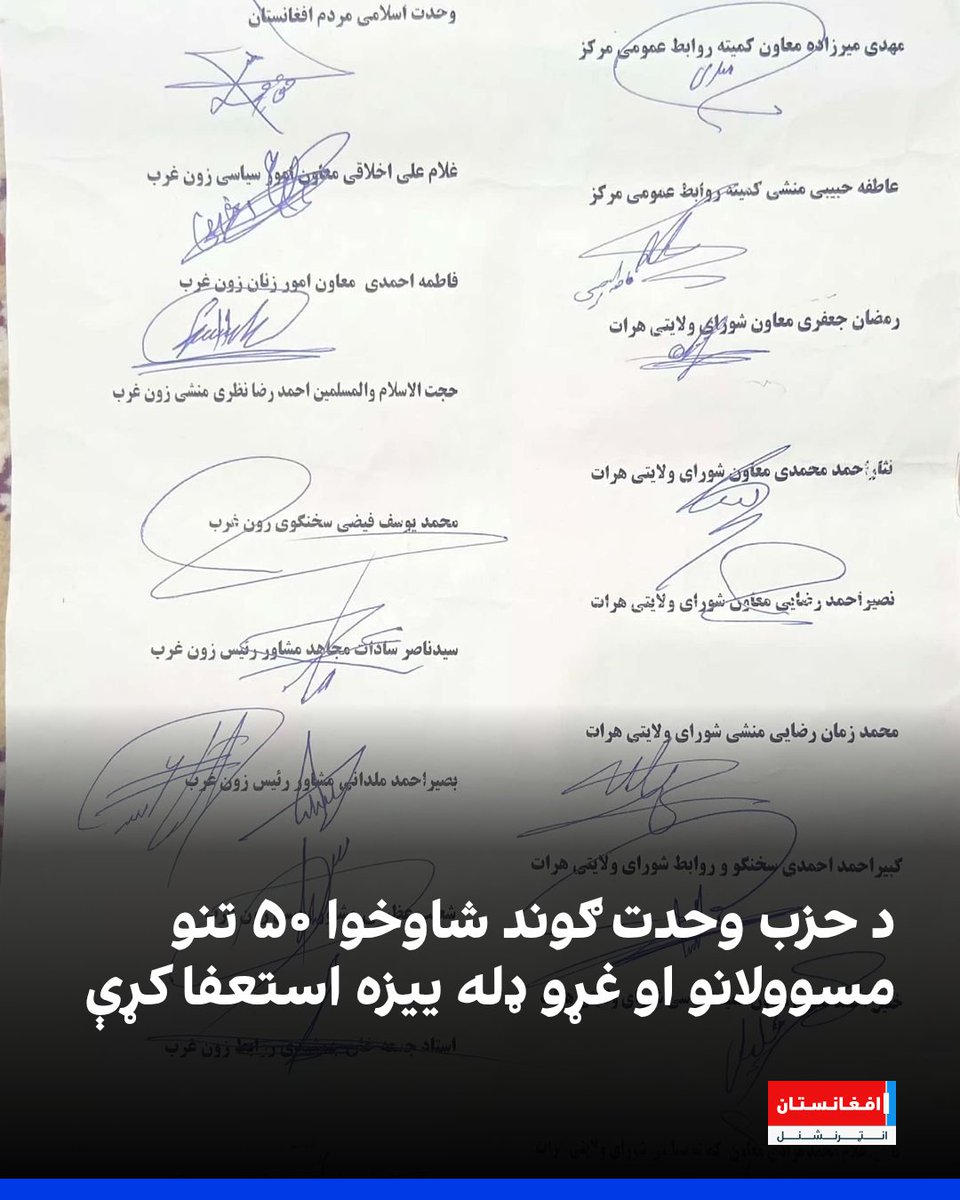 مهدی میرزاده معاون کمیته روابط عمومی مرکز
عاطفه حبیبی منشی کمیته روابط عمومی مرکز
رمضان جعفری معاون شورای ولایتی هرات
نثاراحمد محمدی معاون شورای ولایتی هرات
نصیراحمد رضایی معاون شورای ولایتی هرات
محمد زمان رضایی منشی شورای ولایتی هرات
کبیراحمد احمدی سخنگو و روابط شورای ولایتی هرات
وحدت اسلامی مردم افغانستان
غلام علی اخلاقی معاون امور سیاسی زون غرب
فاطمه احمدی معاون امور زنان زون غرب
حجت الاسلام والمسلمین احمد رضا نظری منشی زون غرب
محمد یوسف فیضی سخنگوی زون غرب
سیدناصر سادات مجاهد مشاور رئیس زون غرب
بصیراحمد ملدانی مشاور رئیس زون غرب
استاد جمعه روابط زون غرب
د حزب وحدت ګوند شاوخوا ۵۰ تنو
مسوولانو او غړو ډله ییزه استعفا کړې
افغانستان
انټرنشنل